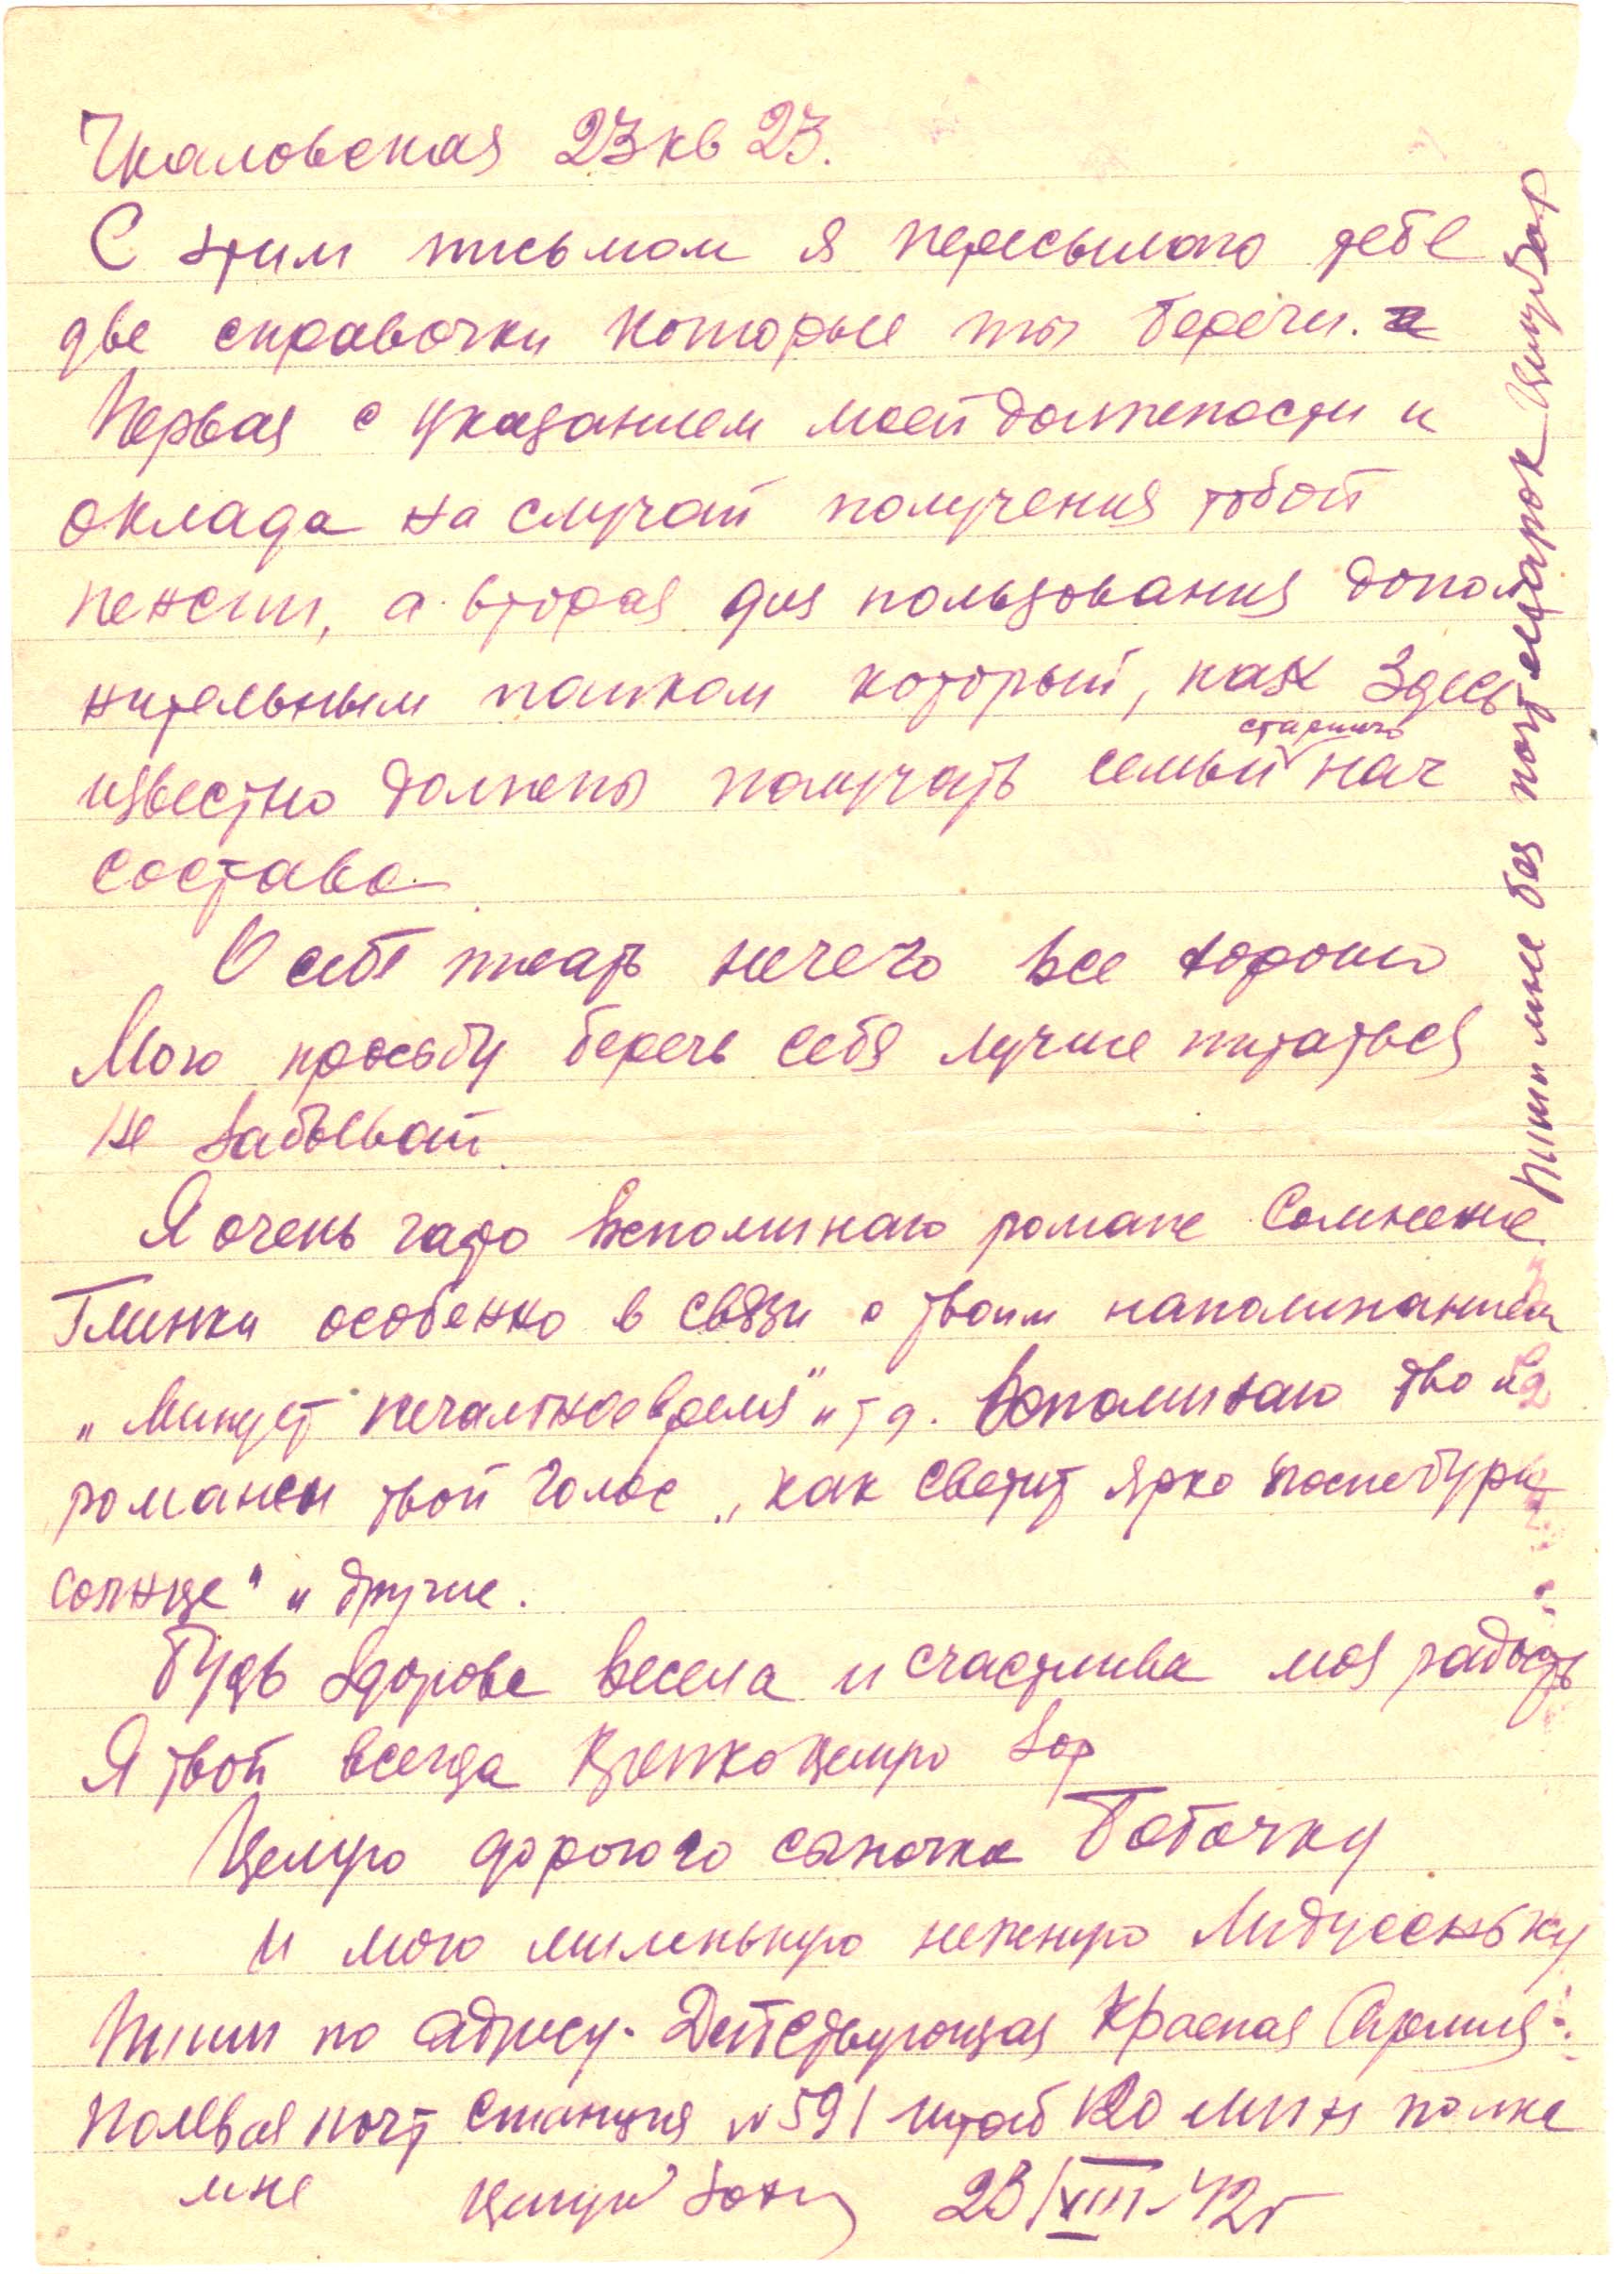 Чкаловская 23 кв 23.
С этим письмом я пересылаю тебе
две справочки которые ты береги.
Первая с указанием моей должности и
оклада на случай получения тобой
пенсии, а вторая для пользования допол
нительным пайком который, как здесь
старшего
известно должены получать семьи нач
состава
О себе писать нечего все хорошо
Мою просьбу беречь себя лучше питаться
не забывай
Я очень часто вспоминаю романс Сомнение
Глинки особенно в связи с твоим напоминанием
„Минует печальное время" и т д. Вспоминаю твои
романсы твой голос „как светит ярко после бури
солнце" и другие.
Будь здорова весела и счастлива моя радость
Я твой всегда Крепко целую Зор
Целую дорогого сыночка Бобочку
и мою миленькую нежную Лидусеньку
Пиши по адресу. Действующая Красная Армия.
Полевая почт станция № 591 штаб 120 мин полка
мне Целую 23/VIII 42г
Пиши мне без почт марок Целую Зор